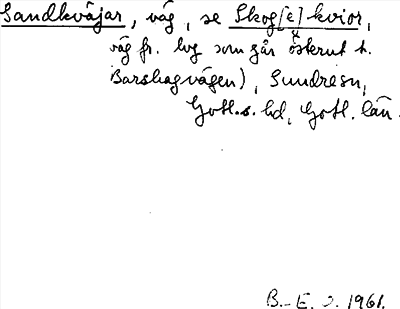 Sandkväjar, väg, se Skog[e]kvior,
väg fr. lvg som går österut t.
Barshagvägen), Sundresn,
Gotl. s. hd, Gotl. län.
B.-E. J. 1961.